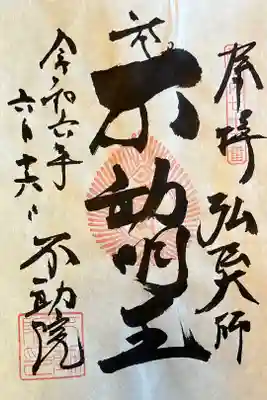 奉拝 弘法大師
不動明王
令和六年
六月十六日 不動院